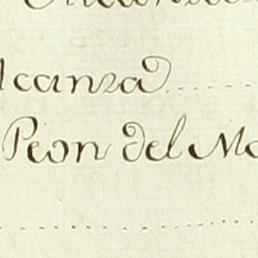 lcanza
Peon del Mo